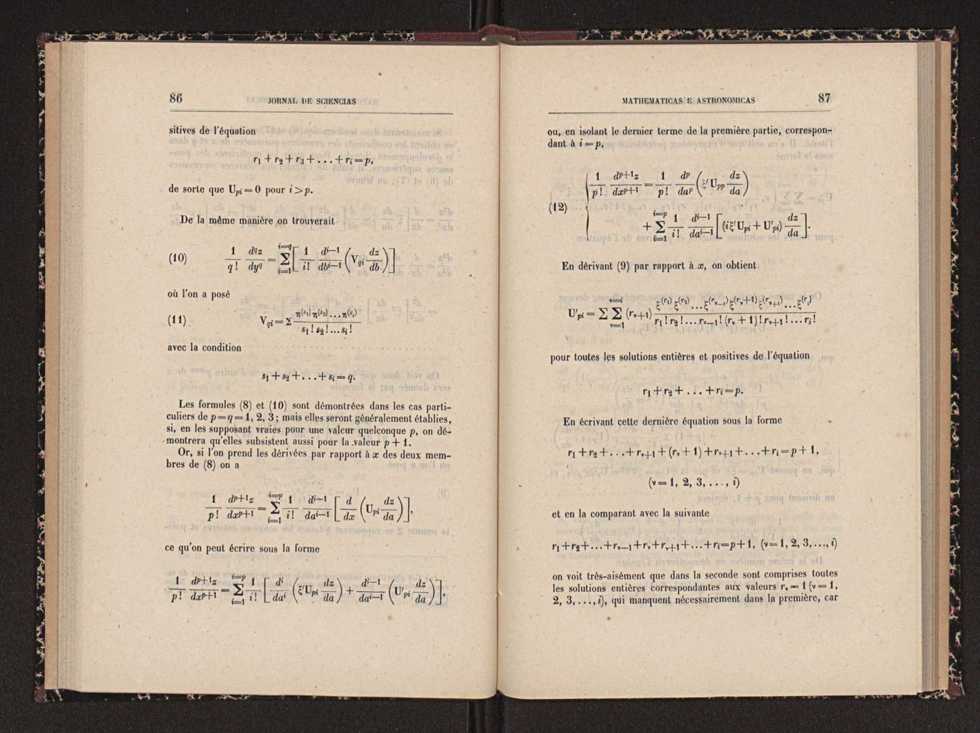 86 JORNAL DE SCIENCIAS
sitives de l'équation
r₁ + r₂ + r₃ + . . . + rᵢ = p,
de sorte que Uₚᵢ = 0 pour i > p.
De la même manière on trouverait
(10) 1/q! d^q z/dy^q = Σ_{i=1}^{i=q} [ 1/i! d^{i−1}/db^{i−1} ( V_{qi} dz/db ) ]
où l'on a posé
(11) V_{qi} = Σ η^{(s₁)} η^{(s₂)} . . . η^{(sᵢ)} / s₁! s₂! . . . sᵢ!
avec la condition
s₁ + s₂ + . . . + sᵢ = q.
Les formules (8) et (10) sont démontrées dans les cas parti-
culiers de p = q = 1, 2, 3 ; mais elles seront généralement établies,
si, en les supposant vraies pour une valeur quelconque p, on dé-
montrera qu'elles subsistent aussi pour la valeur p + 1.
Or, si l'on prend les dérivées par rapport à x des deux mem-
bres de (8) on a
1/p! d^{p+1}z/dx^{p+1} = Σ_{i=1}^{i=p} 1/i! d^{i−1}/da^{i−1} [ d/dx ( U_{pi} dz/da ) ],
ce qu'on peut écrire sous la forme
1/p! d^{p+1}z/dx^{p+1} = Σ_{i=1}^{i=p} 1/i! [ d^i/da^i ( ξ′U_{pi} dz/da ) + d^{i−1}/da^{i−1} ( U′_{pi} dz/da ) ],
MATHEMATICAS E ASTRONOMICAS 87
ou, en isolant le dernier terme de la première partie, correspon-
dant à i = p,
(12) { 1/p! d^{p+1}z/dx^{p+1} = 1/p! d^p/da^p ( ξ′U_{pp} dz/da )
+ Σ_{i=1}^{i=p} 1/i! d^{i−1}/da^{i−1} [ (iξ′U_{pi} + U′_{pi}) dz/da ].
En dérivant (9) par rapport à x, on obtient
U′_{pi} = Σ Σ_{ν=1}^{ν=i} (r_ν+1) ξ^{(r₁)} ξ^{(r₂)} . . . ξ^{(r_{ν−1})} ξ^{(r_ν+1)} ξ^{(r_{ν+1})} . . . ξ^{(rᵢ)} / r₁! r₂! . . . r_{ν−1}! (r_ν + 1)! r_{ν+1}! . . . rᵢ!
pour toutes les solutions entières et positives de l'équation
r₁ + r₂ + . . . + rᵢ = p.
En écrivant cette dernière équation sous la forme
r₁ + r₂ + . . . + r_{ν−1} + (r_ν + 1) + r_{ν+1} + . . . + rᵢ = p + 1,
(ν = 1, 2, 3, . . . , i)
et en la comparant avec la suivante
r₁ + r₂ + . . . + r_{ν−1} + r_ν + r_{ν+1} + . . . + rᵢ = p + 1, (ν = 1, 2, 3, . . ., i)
on voit très-aisément que dans la seconde sont comprises toutes
les solutions entières correspondantes aux valeurs r_ν = 1 (ν = 1,
2, 3, . . ., i), qui manquent nécessairement dans la première, car